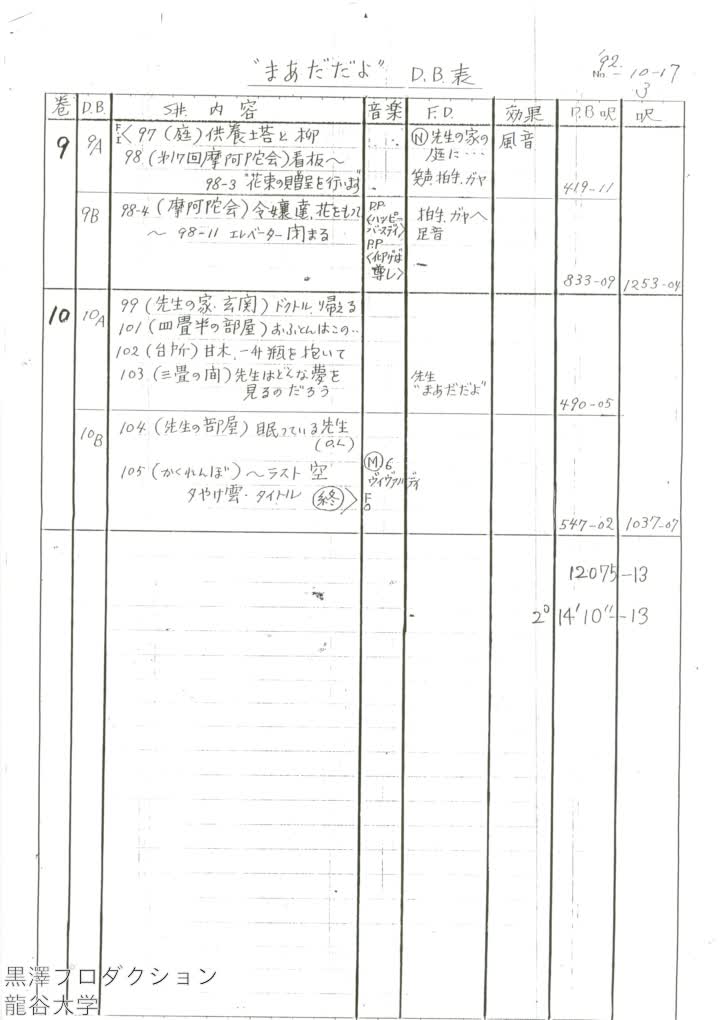 "まあだだよ" D.B.表
'92.
No -10-17
3
巻 D.B. S#. 内容 音楽 F.D. 効果 D.B呎 呎
9 9A FI 97 (庭) 供養塔と柳 Ⓝ先生の家の 風音
庭に・・・
98 (第17回摩阿陀会)看板〜 笑声.拍手.ガヤ
98-3 "花束の贈呈を行います" 419-11
9B 98-4 (摩阿陀会)令嬢達,花をもって P.P 拍手.ガヤへ
〜 98-11 エレベーター閉まる 〈ハッピーバースデイ〉 足音
P.P
〈仰げば尊し〉
833-09 1253-04
10 10A 99 (先生の家.玄関) ドクトル.
101 (四畳半の部屋) おふとんはこの・・
102 (台所) 甘木,一升瓶を抱いて
103 (三畳の間) 先生はどんな夢を 先生
見るのだろう "まあだだよ"
490-05
10B 104 (先生の部屋) 眠っている先生
(O.L)
105 (かくれんぼ) 〜ラスト 空 Ⓜ6
夕やけ雲.タイトル 終 ヴィヴァルディ
FO
547-02 1037-07
12075-13
2° 14'10"-13
黒澤プロダクション
龍谷大学